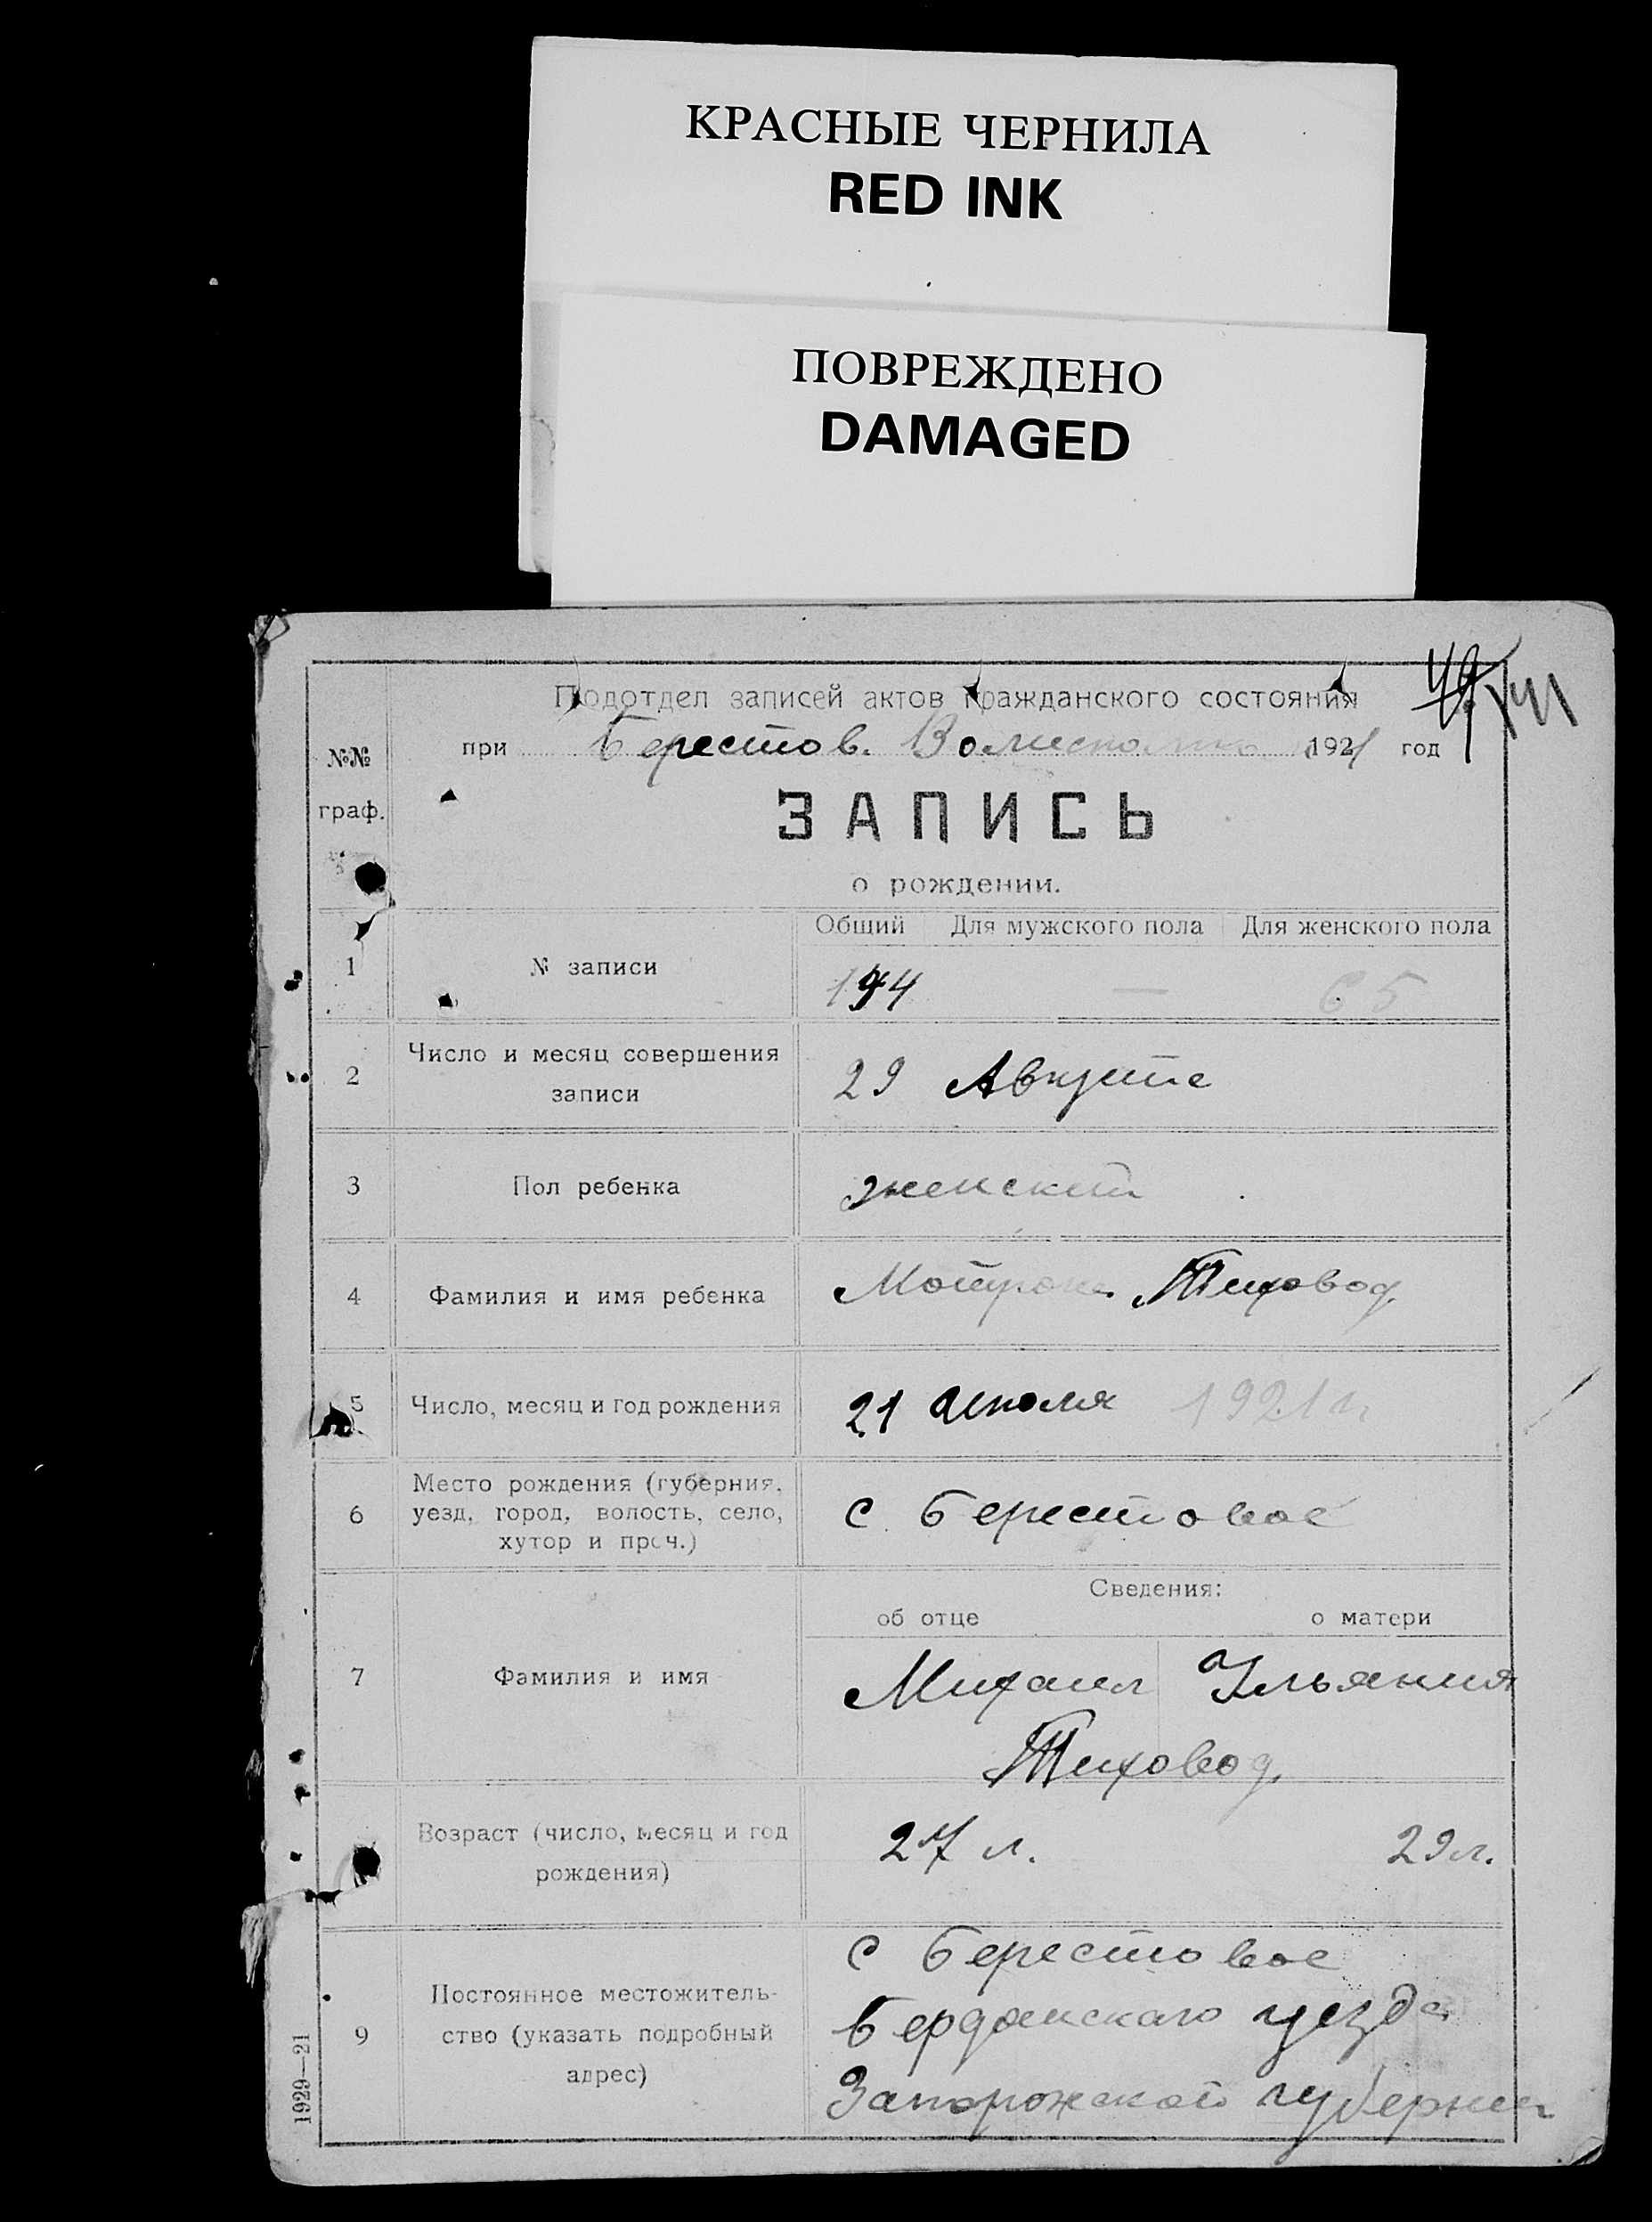 КРАСНЫЕ ЧЕРНИЛА
RED INK
ПОВРЕЖДЕНО
DAMAGED
Подотдел записей актов гражданского состояния
№№ граф.
при Берестов. 1921 год
ЗАПИСЬ
о рождении.
Общий Для мужского пола Для женского пола
1 № записи — 65
2 Число и месяц совершения записи 29 Августа
3 Пол ребенка женский
4 Фамилия и имя ребенка Мотрона Тиховод
5 Число, месяц и год рождения 21 1921 г.
6 Место рождения (губерния, уезд, город, волость, село, хутор и проч.) с Берестовое
Сведения:
об отце о матери
7 Фамилия и имя Михаил Ульяния
Тиховод
Возраст (число, месяц и год рождения) 27 л. 29 л.
9 Постоянное местожитель-
ство (указать подробный
адрес)
с Берестовое
Бердянскаго уезда
Запорожской губернии
1929—21